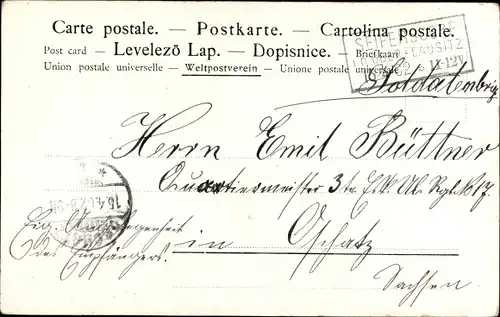 Carte postale. — Postkarte. — Cartolina postale.
Post card — Levelező Lap. — Dopisnice. — Briefkaart
Union postale universelle — Weltpostverein — Unione postale universale
SEIFERSDORF
Soldatenbrief
Herrn Emil Büttner
Quartiermeister 3te Esk. Ul. Rgt. 17
Eig. Angelegenheit
des Empfängers.
in Oschatz
Sachsen